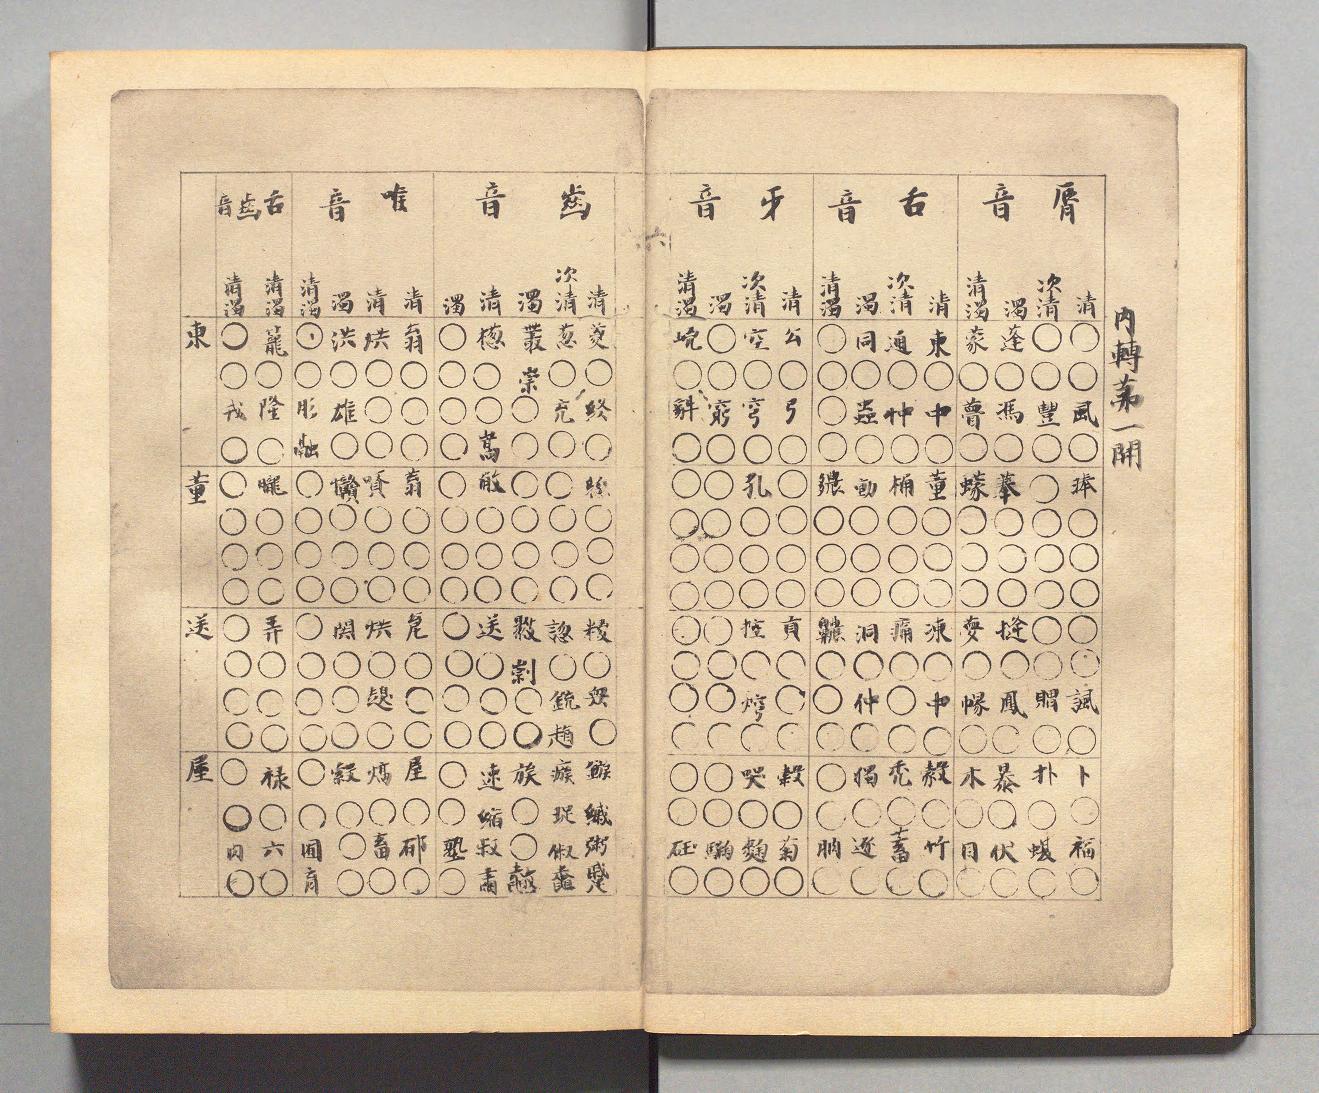 內轉第一開
脣音
清○○風○琫○○○○○諷○卜○福○
次清○○豐○○○○○○○賵○扑○蝮○
濁蓬○馮○菶○○○槰○鳳○暴○伏○
清濁蒙○瞢○蠓○○○夢○幪○木○目○
舌音
清東○中○董○○○凍○中○縠○竹○
次清通○忡○桶○○○痛○○○禿○蓄○
濁同○蟲○動○○○洞○仲○獨○逐○
清濁○○○○繷○○○齈○○○○○肭○
牙音
清公○弓○○○○○貢○○○穀○菊○
次清空○穹○孔○○○控○焪○哭○麴○
濁○○窮○○○○○○○○○○○駶○
清濁㟅○○○○○○○○○○○○砡○
齒音
清葼○終○總○○○糉○衆○鏃縬粥蹙
次清怱○充○○○○○謥○銃趥瘯珿俶鼀
濁叢崇○○○○○○○○族○○
清檧○○嵩○○○送○○○速縮叔肅
濁○○○○○○○○○○○○○○塾○
喉音
清翁○○○蓊○○○瓮○○○屋○郁○
清烘○○○嗊○○○烘○○熇○畜○
濁洪○雄○○○○閧○○○縠○○○
清濁○○肜融○○○○○○○○○○囿育
舌齒音
清濁籠○隆○曨○○○弄○○○禄○六○
清濁○○戎○○○○○○○○○○○肉○
東董送屋